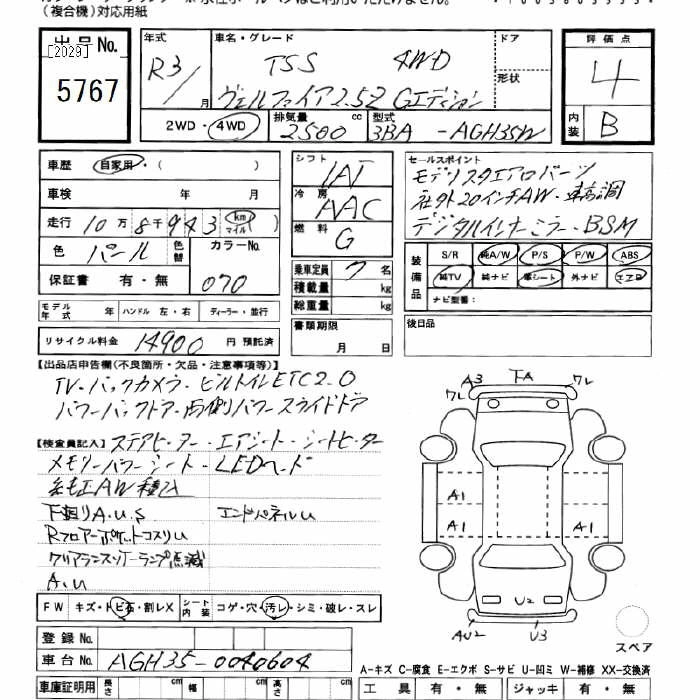 （複合機）対応用紙
出品No.
[2029]
5767
年式
R3/
月
車名・グレード
TSS 4WD
ヴェルファイア2.5Z Gエディション
ドア
形状
評価点
4
内装
B
2WD・4WD
排気量
2500
cc
型式
3BA -AGH35W
車歴 自家用・（ ）
車検 年 月
走行 10万8千943 km マイル
色 パール 色替
カラーNo.
070
保証書 有・無
シフト
IAT
冷房
AAC
燃料
G
乗車定員 7 名
積載量 kg
総重量 kg
書類期限
月 日
セールスポイント
モデリスタエアロパーツ
社外20インチAW・車高調
デジタルインナーミラー・BSM
装備品
S/R 純A/W P/S P/W ABS
純TV 純ナビ 革シート 外ナビ エアB
ナビ型番：
後日品
モデル年式 年 ハンドル 左・右 ディーラー・並行
リサイクル料金 14900 円 預託済
【出品店申告欄(不良箇所・欠品・注意事項等)】
TV・バックカメラ・ビルトインETC2.0
パワーバックドア・両側パワースライドドア
【検査員記入】ステアヒーター・エアシート・シートヒーター
メモリーパワーシート・LEDヘッド
純正AW積込
下廻りA.U.S エンドパネルU
Rフロアーポケットコスリ
クリアランスソナーランプ点滅
A.U
A3 下A ワレ
ワレ
A1
A1 A1
U2
AU2 U3
スペア
FW キズ・トビ石・割レX シート内装 コゲ・穴・汚レ・シミ・破レ・スレ
登録No.
車台No. AGH35-0040604
A-キズ C-腐食 E-エクボ S-サビ U-凹ミ W-補修 XX-交換済
車庫証明用 長さ cm 幅 cm 高さ cm
工具 有・無 ジャッキ 有・無